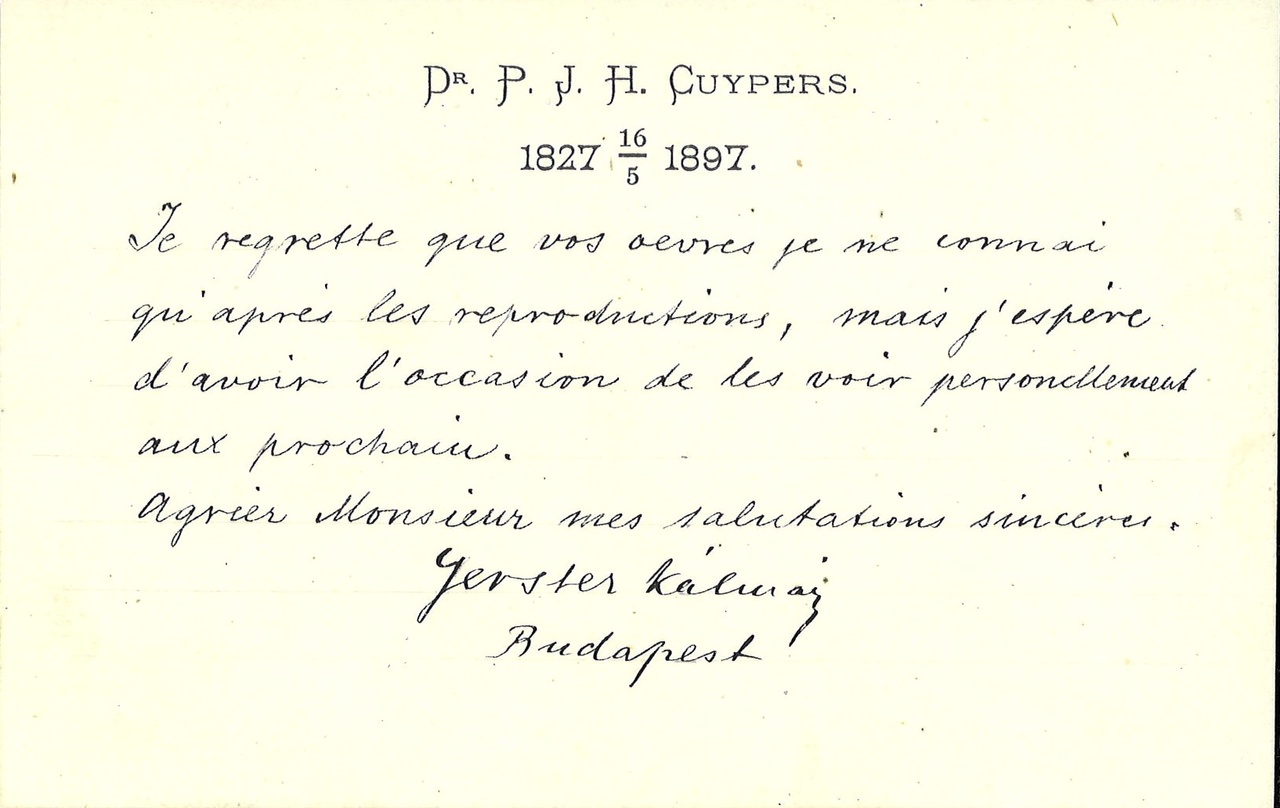 Dr. P. J. H. Cuypers.
1827 16/5 1897.
Je regrette que vos oevres je ne connai
qu'aprés les reproductions, mais j'espère
d'avoir l'occasion de les voir personellement
aux prochain.
Agrier Monsieur mes salutations sincères.
Gerster Kálmán
Budapest